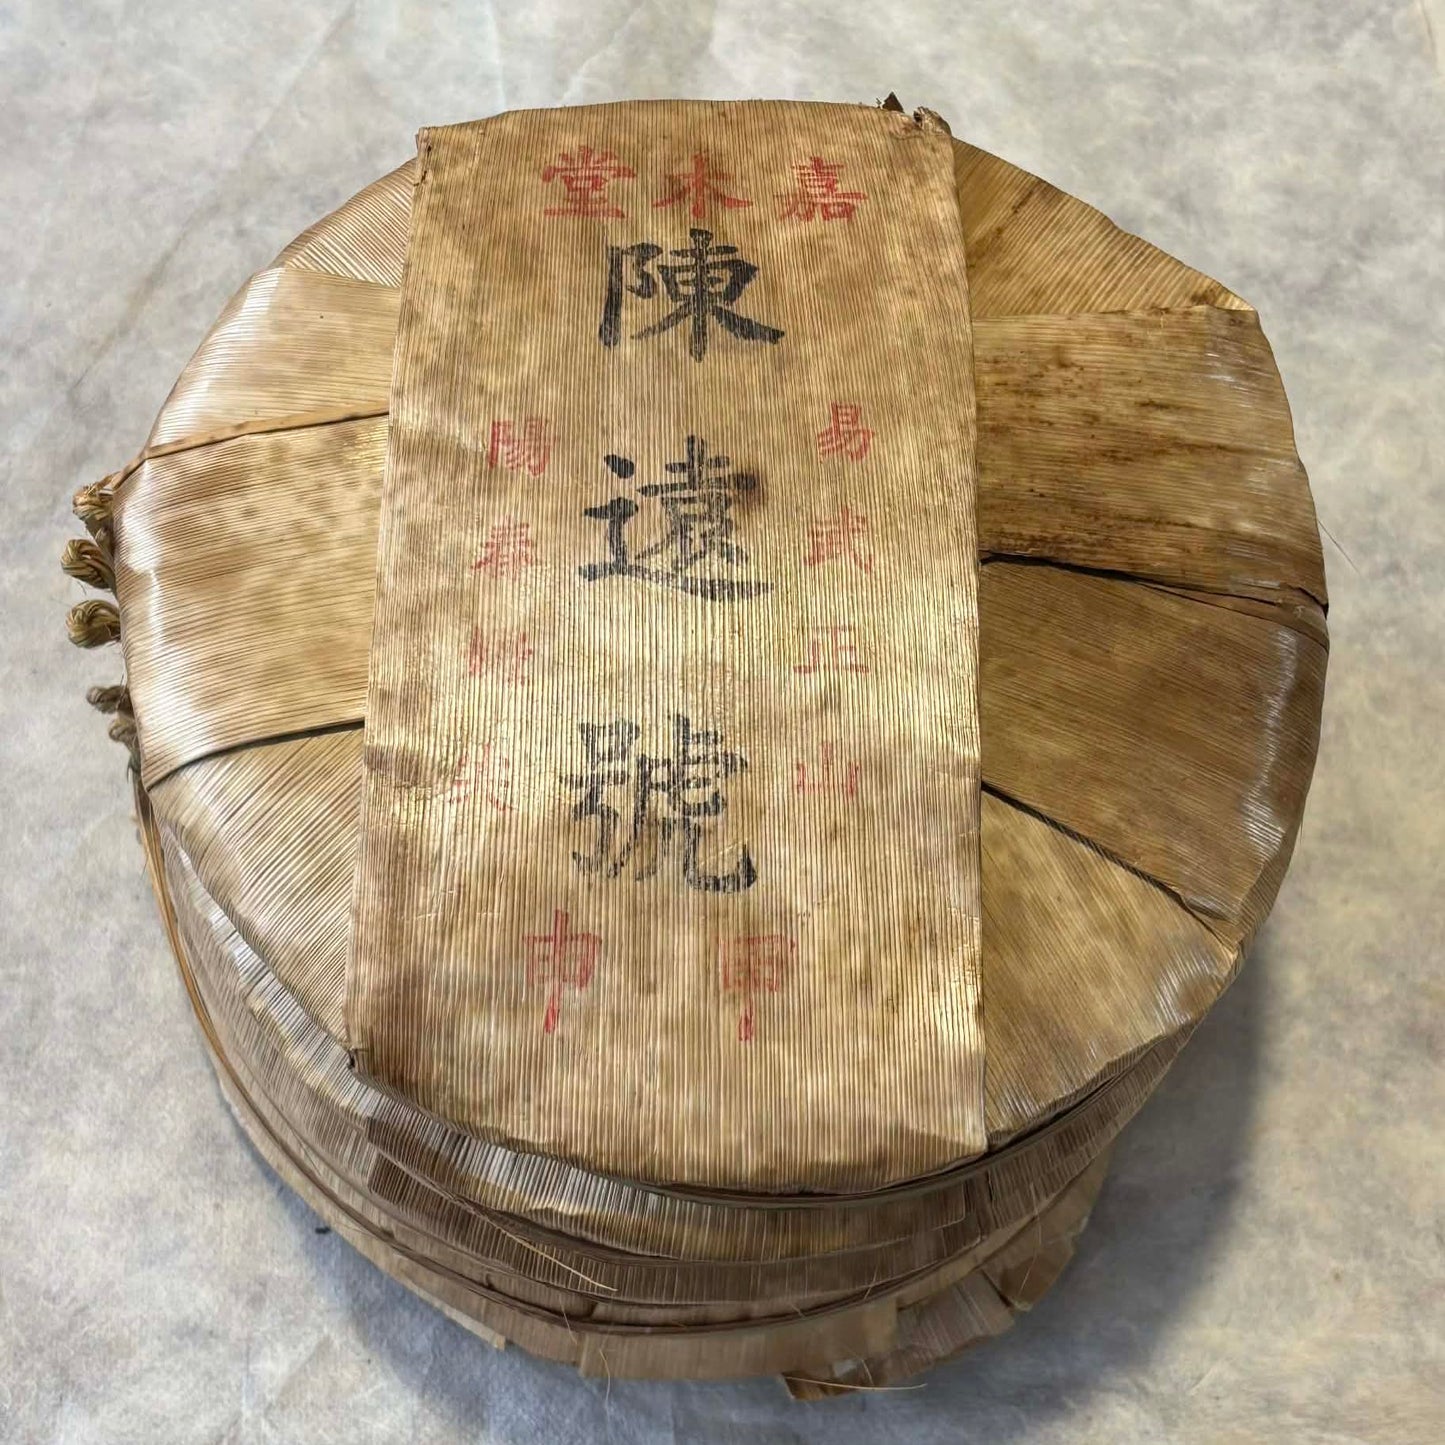 嘉木堂
易武正山
陳遠號
陽春
甲申